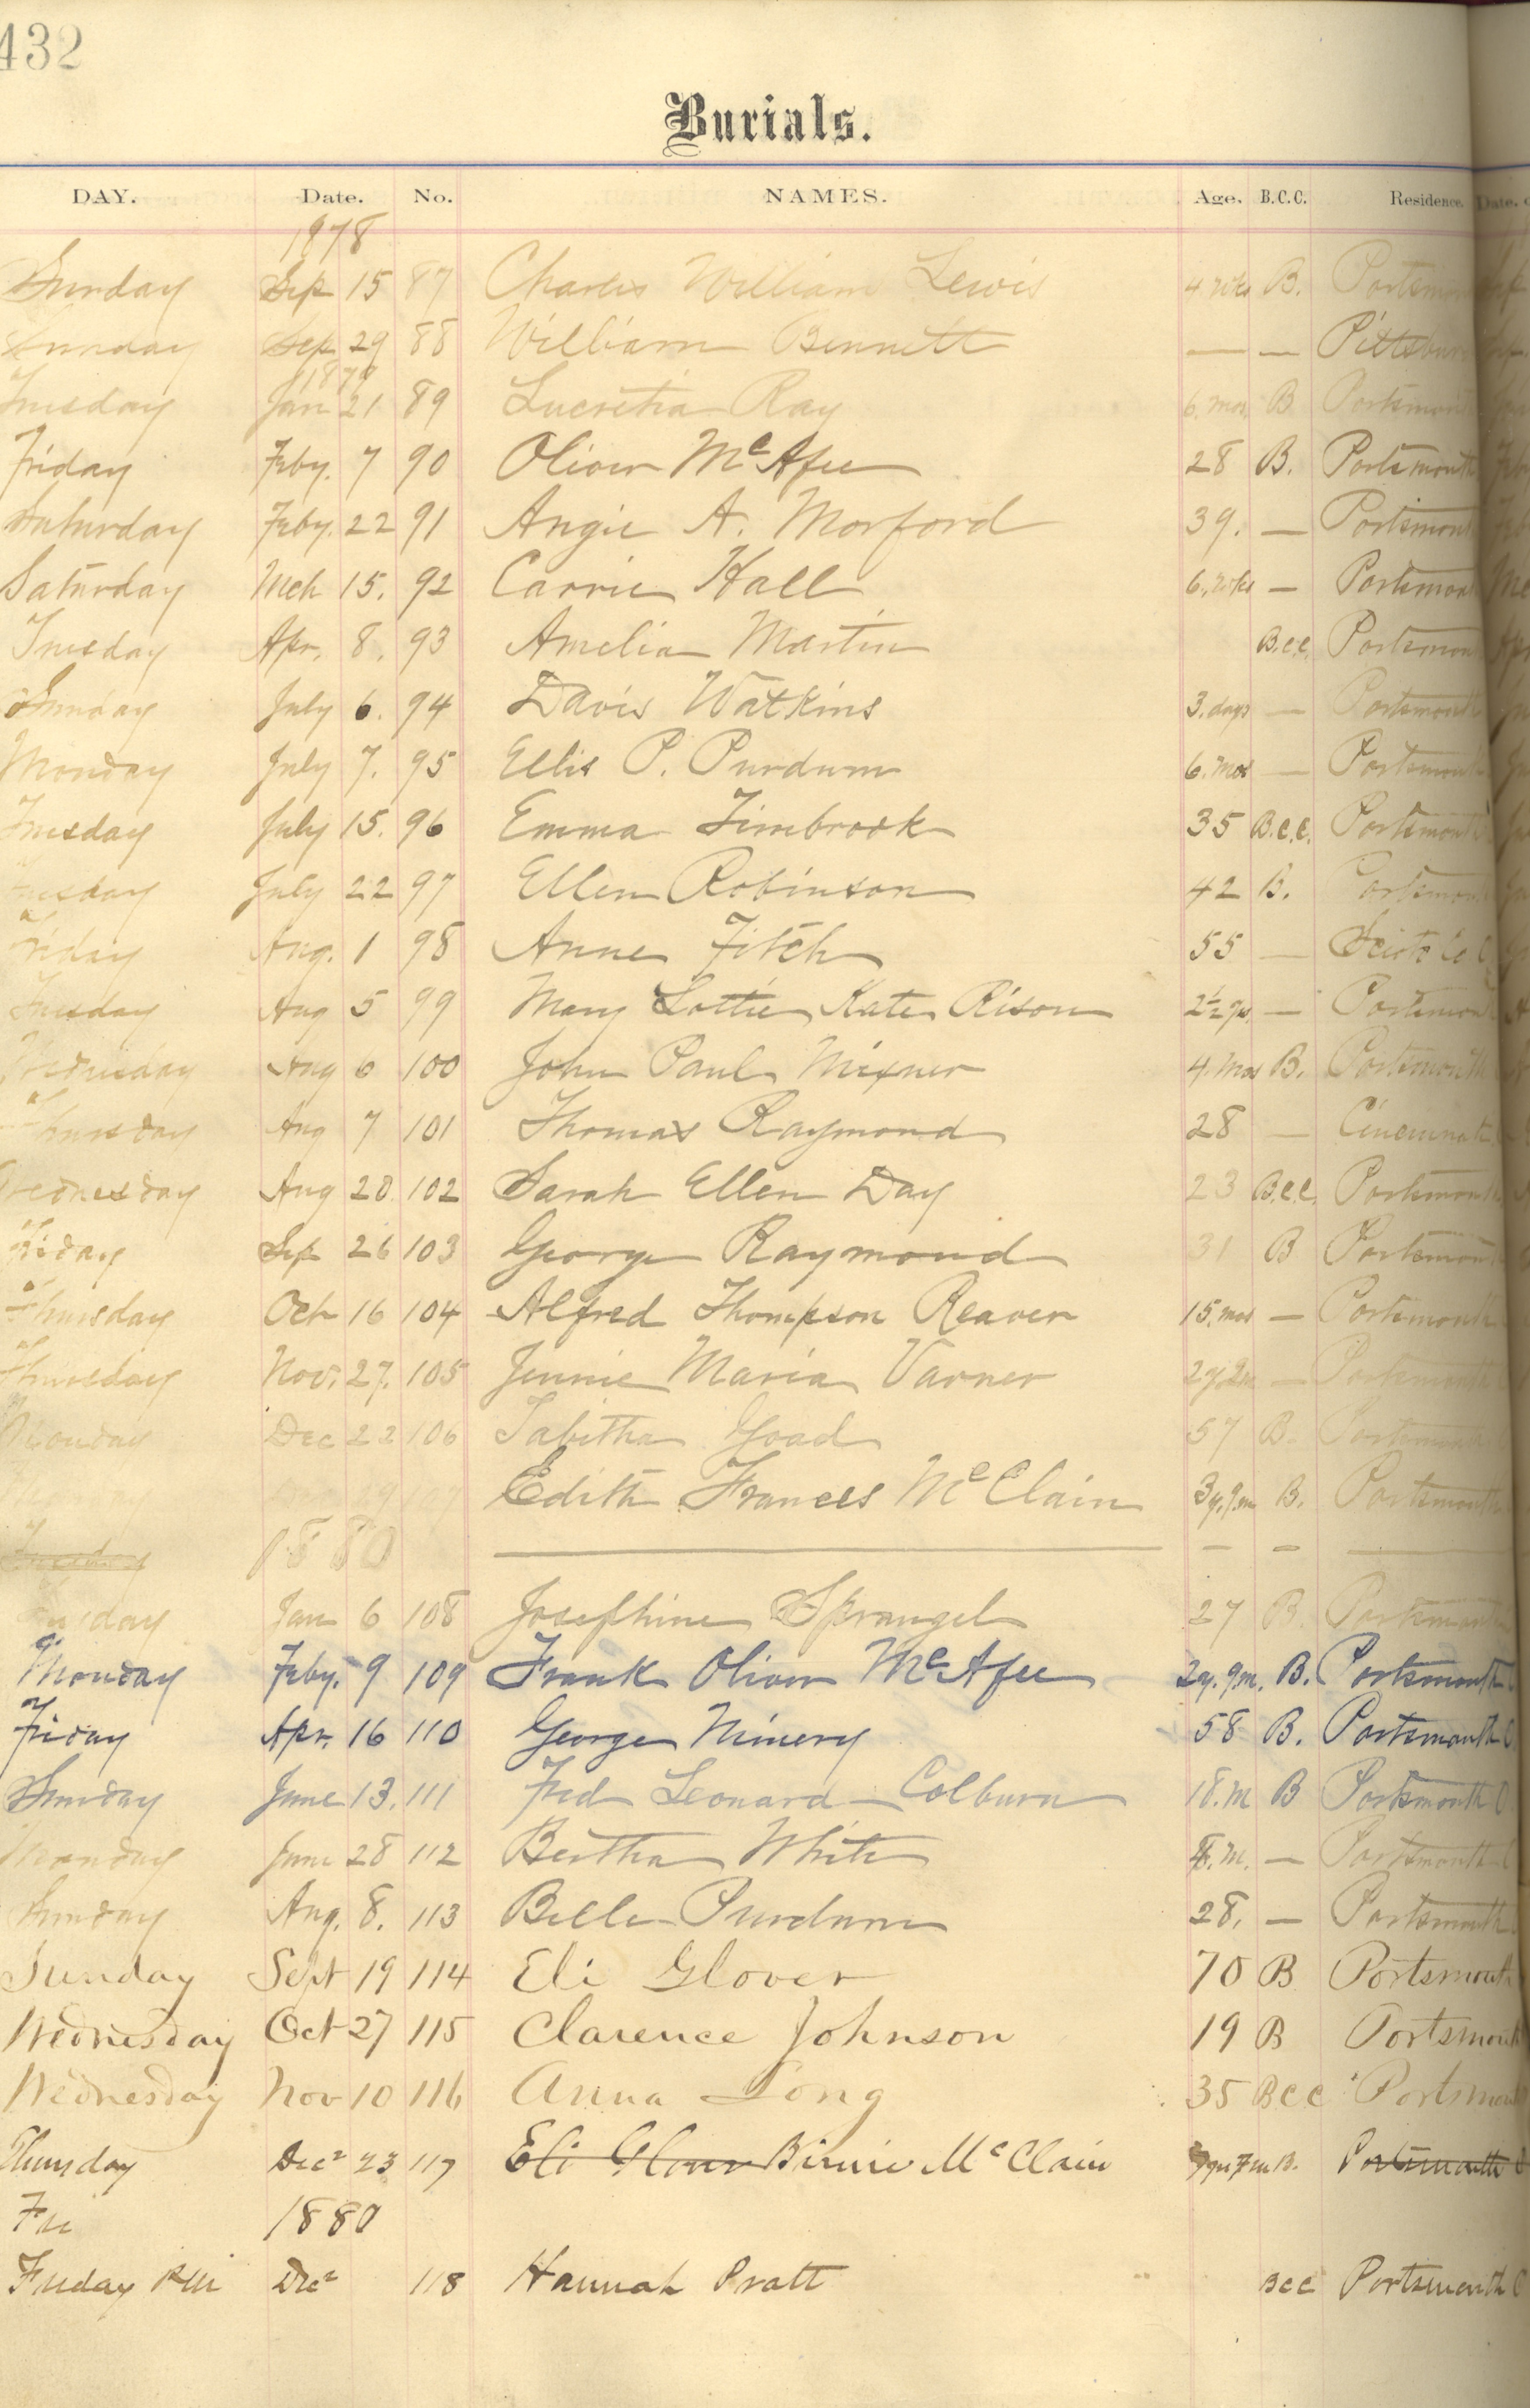 432
Burials.
DAY. Date. No. NAMES. Age. B.C.C. Residence. Date.
1878
Sunday Sep 15 87 Charles William Lewis 4 wks B.
Sunday Sep 29 88 William Bennett — —
1879
Tuesday Jan 21 89 Lucretia Ray 6. mos B Portsmouth
Friday Feby. 7 90 Oliver McAfee 28 B. Portsmouth
Saturday Feby. 22 91 Angie A. Morford 39. — Portsmouth
Saturday Mch 15. 92 Carrie Hall 6. wks — Portsmouth
Tuesday Apr. 8. 93 Amelia Martin B.C.C. Portsmouth
Sunday July 6. 94 Davis Watkins 3. days — Portsmouth
Monday July 7. 95 Ellis P. Purdum 6. mos — Portsmouth
Tuesday July 15. 96 Emma Timbrook 35 B.C.C. Portsmouth
Tuesday July 22 97 Ellen Robinson 42 B. Portsmouth
Friday Aug. 1 98 Anne Fitch 55 — Scioto Co
Tuesday Aug 5 99 Mary Lottie Kate Rison 2½ ys. — Portsmouth
Wednesday Aug 6 100 John Paul Mixner 4. mos B. Portsmouth
Thursday Aug 7 101 Thomas Raymond 28 — Cincinnati
Wednesday Aug 20 102 Sarah Ellen Day 23 B.C.C. Portsmouth
Friday Sep 26 103 George Raymond 31 B Portsmouth
Thursday Oct 16 104 Alfred Thompson Reaver 15. mos — Portsmouth
Thursday Nov. 27. 105 Jennie Maria Varner 2y.2m — Portsmouth
Monday Dec 22 106 Tabitha Goad 57 B. Portsmouth
107 Edith Frances McClain 3y.9m B. Portsmouth
Tuesday 1880 — — — —
Tuesday Jan 6 108 Josephine Sprangel 27 B. Portsmouth
Monday Feby. 9 109 Frank Oliver McAfee 2y. 9m. B. Portsmouth
Friday Apr. 16 110 George Ninery 58 B. Portsmouth O
Sunday June 13. 111 Fred Leonard Colburn 18. m B Portsmouth O
Monday June 28 112 Bertha White 8. m. — Portsmouth O
Sunday Aug. 8. 113 Belle Purdum 28. — Portsmouth
Sunday Sept 19 114 Eli Glover 70 B Portsmouth
Wednesday Oct 27 115 Clarence Johnson 19 B Portsmouth
Wednesday Nov 10 116 Anna Long 35 BCC Portsmouth
Thursday Dec 23 117 Eli Glover Birnie McClain B. Portsmouth O
Fri 1880
Friday Dec 118 Hannah Pratt BCC Portsmouth O